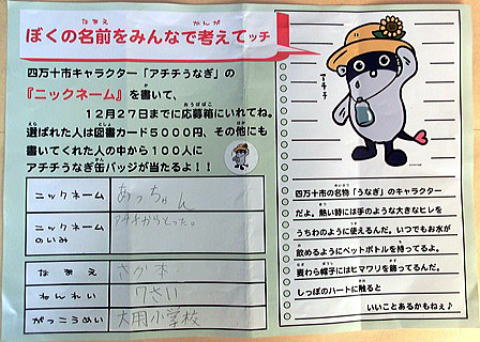 ぼくの名前をみんなで考えてッチ
四万十市キャラクター「アチチうなぎ」の
『ニックネーム』を書いて、
12月27日までに応募箱にいれてね。
選ばれた人は図書カード5000円、その他にも
書いてくれた人の中から100人に
アチチうなぎ缶バッジが当たるよ!!
ニックネーム あっちゃん
ニックネームのいみ アチチからとった。
なまえ さか本
ねんれい 7さい
がっこうめい 大用小学校
アチチ
四万十市の名物「うなぎ」のキャラクター
だよ。熱い時には手のような大きなヒレを
うちわのように使えるんだ。いつでもお水が
飲めるようにペットボトルを持ってるよ。
麦わら帽子にはヒマワリを飾ってるんだ。
しっぽのハートに触ると
いいことあるかもねぇ♪